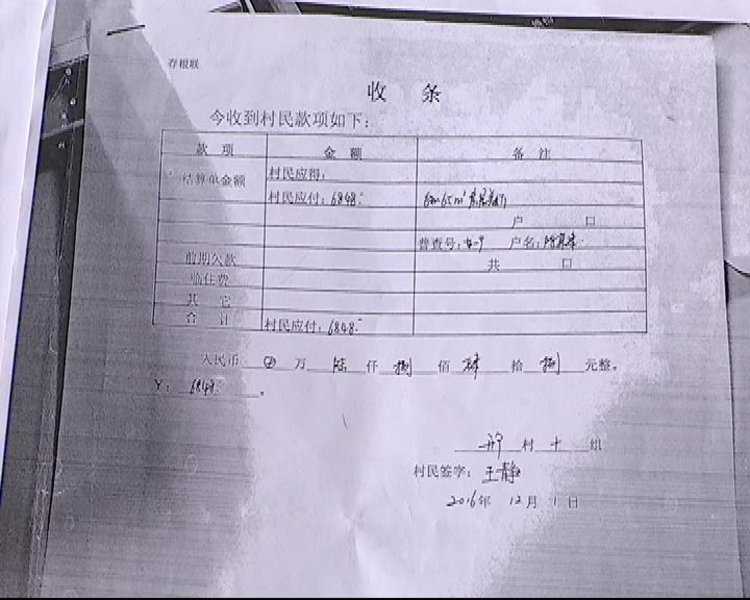 存根联
收 条
今收到村民款项如下：
款 项 金 额 备 注
结算单金额 村民应得：
村民应付：6848.-
户 口
普查号： 户名：
前期欠款 共 口
临住费
其 它
合 计 村民应付：6848.-
人民币 万 陆 仟 捌 佰 肆 拾 捌 元整。
Y： 6848 。
村 十 组
村民签字：王静
2016年 12月 1日